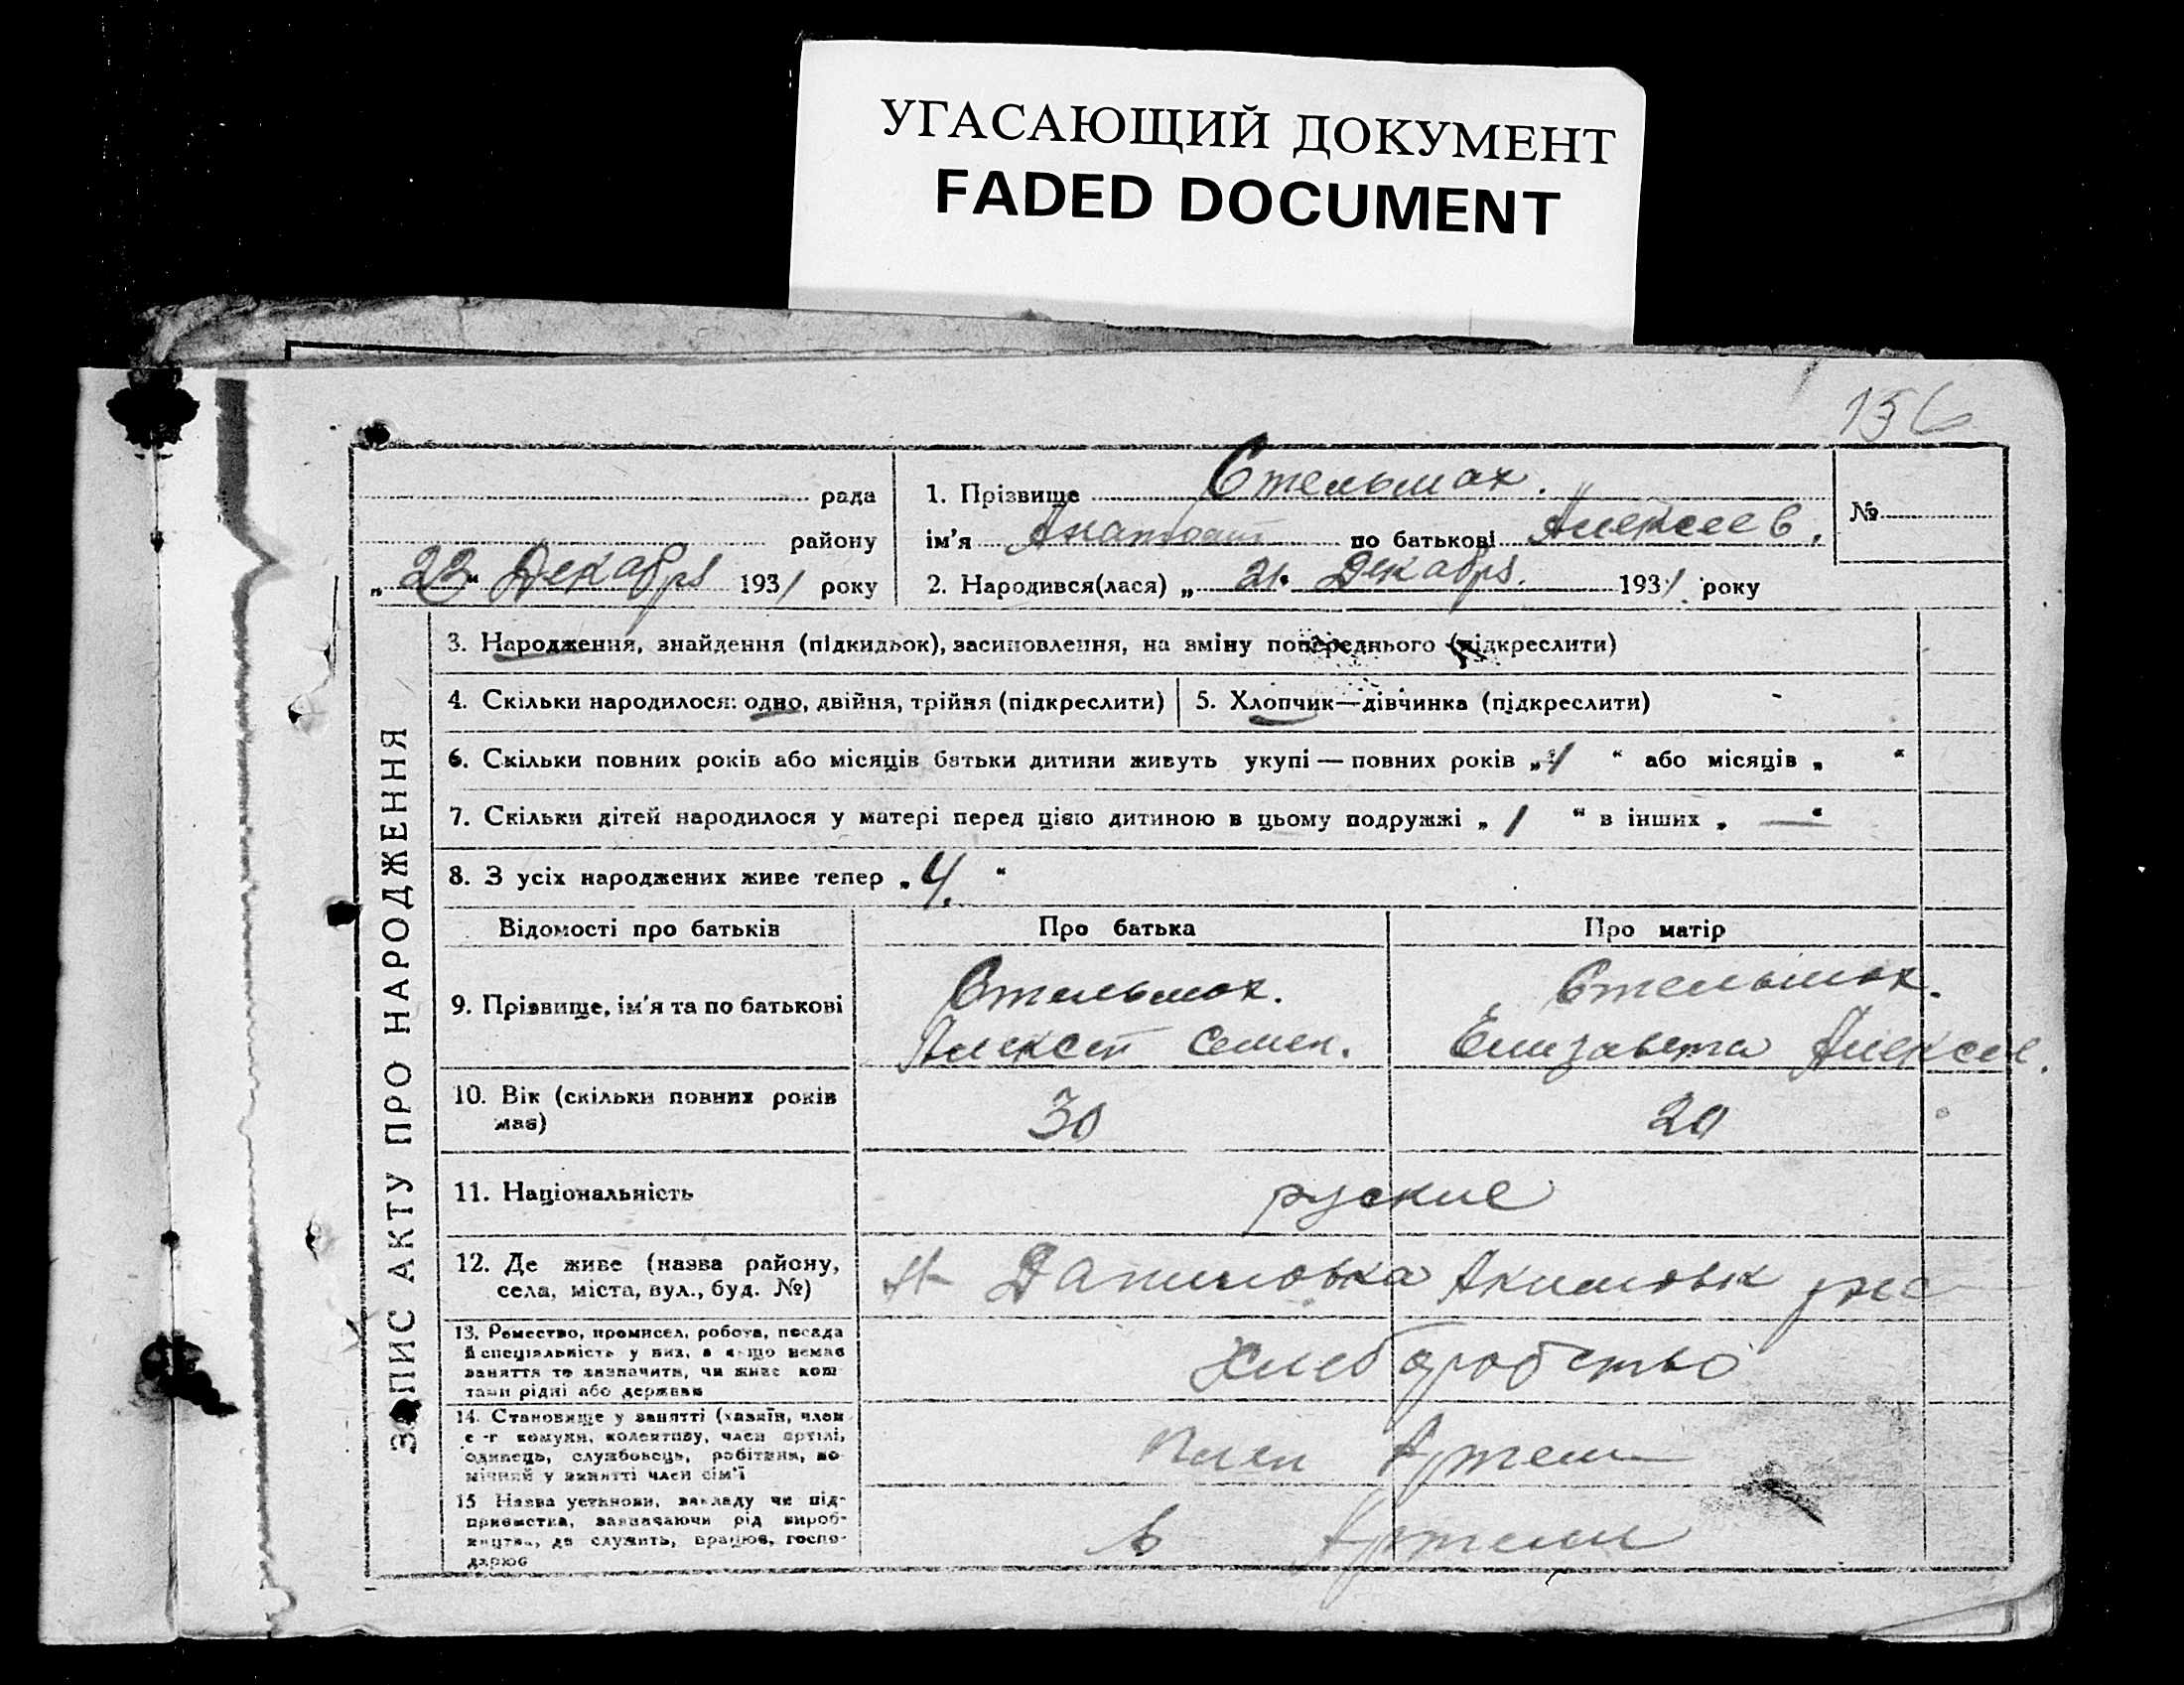 УГАСАЮЩИЙ ДОКУМЕНТ
FADED DOCUMENT
156
ЗАПИС АКТУ ПРО НАРОДЖЕННЯ
рада
району
„ 23 “ Декабря 1931 року
1. Прізвище Стельмах.
ім'я Анатолий по батькові Алексеев.
№
2. Народився(лася) „ 21. Декабря. 1931. року
3. Народження, знайдення (підкидьок), засиновлення, на зміну попереднього (підкреслити)
4. Скільки народилося: одно, двійня, трійня (підкреслити)
5. Хлопчик—дівчинка (підкреслити)
6. Скільки повних років або місяців батьки дитини живуть укупі — повних років „ “ або місяців „ “
7. Скільки дітей народилося у матері перед цією дитиною в цьому подружжі „ 1 “ в інших „ — “
8. З усіх народжених живе тепер „ 4. “
Відомості про батьків
Про батька
Про матір
9. Прізвище, ім'я та по батькові
Стельмах.
Алексей Семен.
Стельмах.
Елизавета Алексее.
10. Вік (скільки повних років
має)
30
20
11. Національність
руские
12. Де живе (назва району,
села, міста, вул., буд. №)
Даниловка Акимовк
13. Ремество, промисел, робота, посада
й спеціяльність у них, а якщо немає
заняття то зазначити, чи живе кош-
тами рідні або держави
Хлеборобство
14. Становище у занятті (хазяїн, член
с-г комуни, колективу, член артілі,
одинець, службовець, робітник, по-
мічний у занятті член сім'ї
Член Артели
15 Назва установи, закладу чи під-
приємства, зазначаючи рід вироб-
ництва, де служить, працює, госпо-
дарює
в Артели